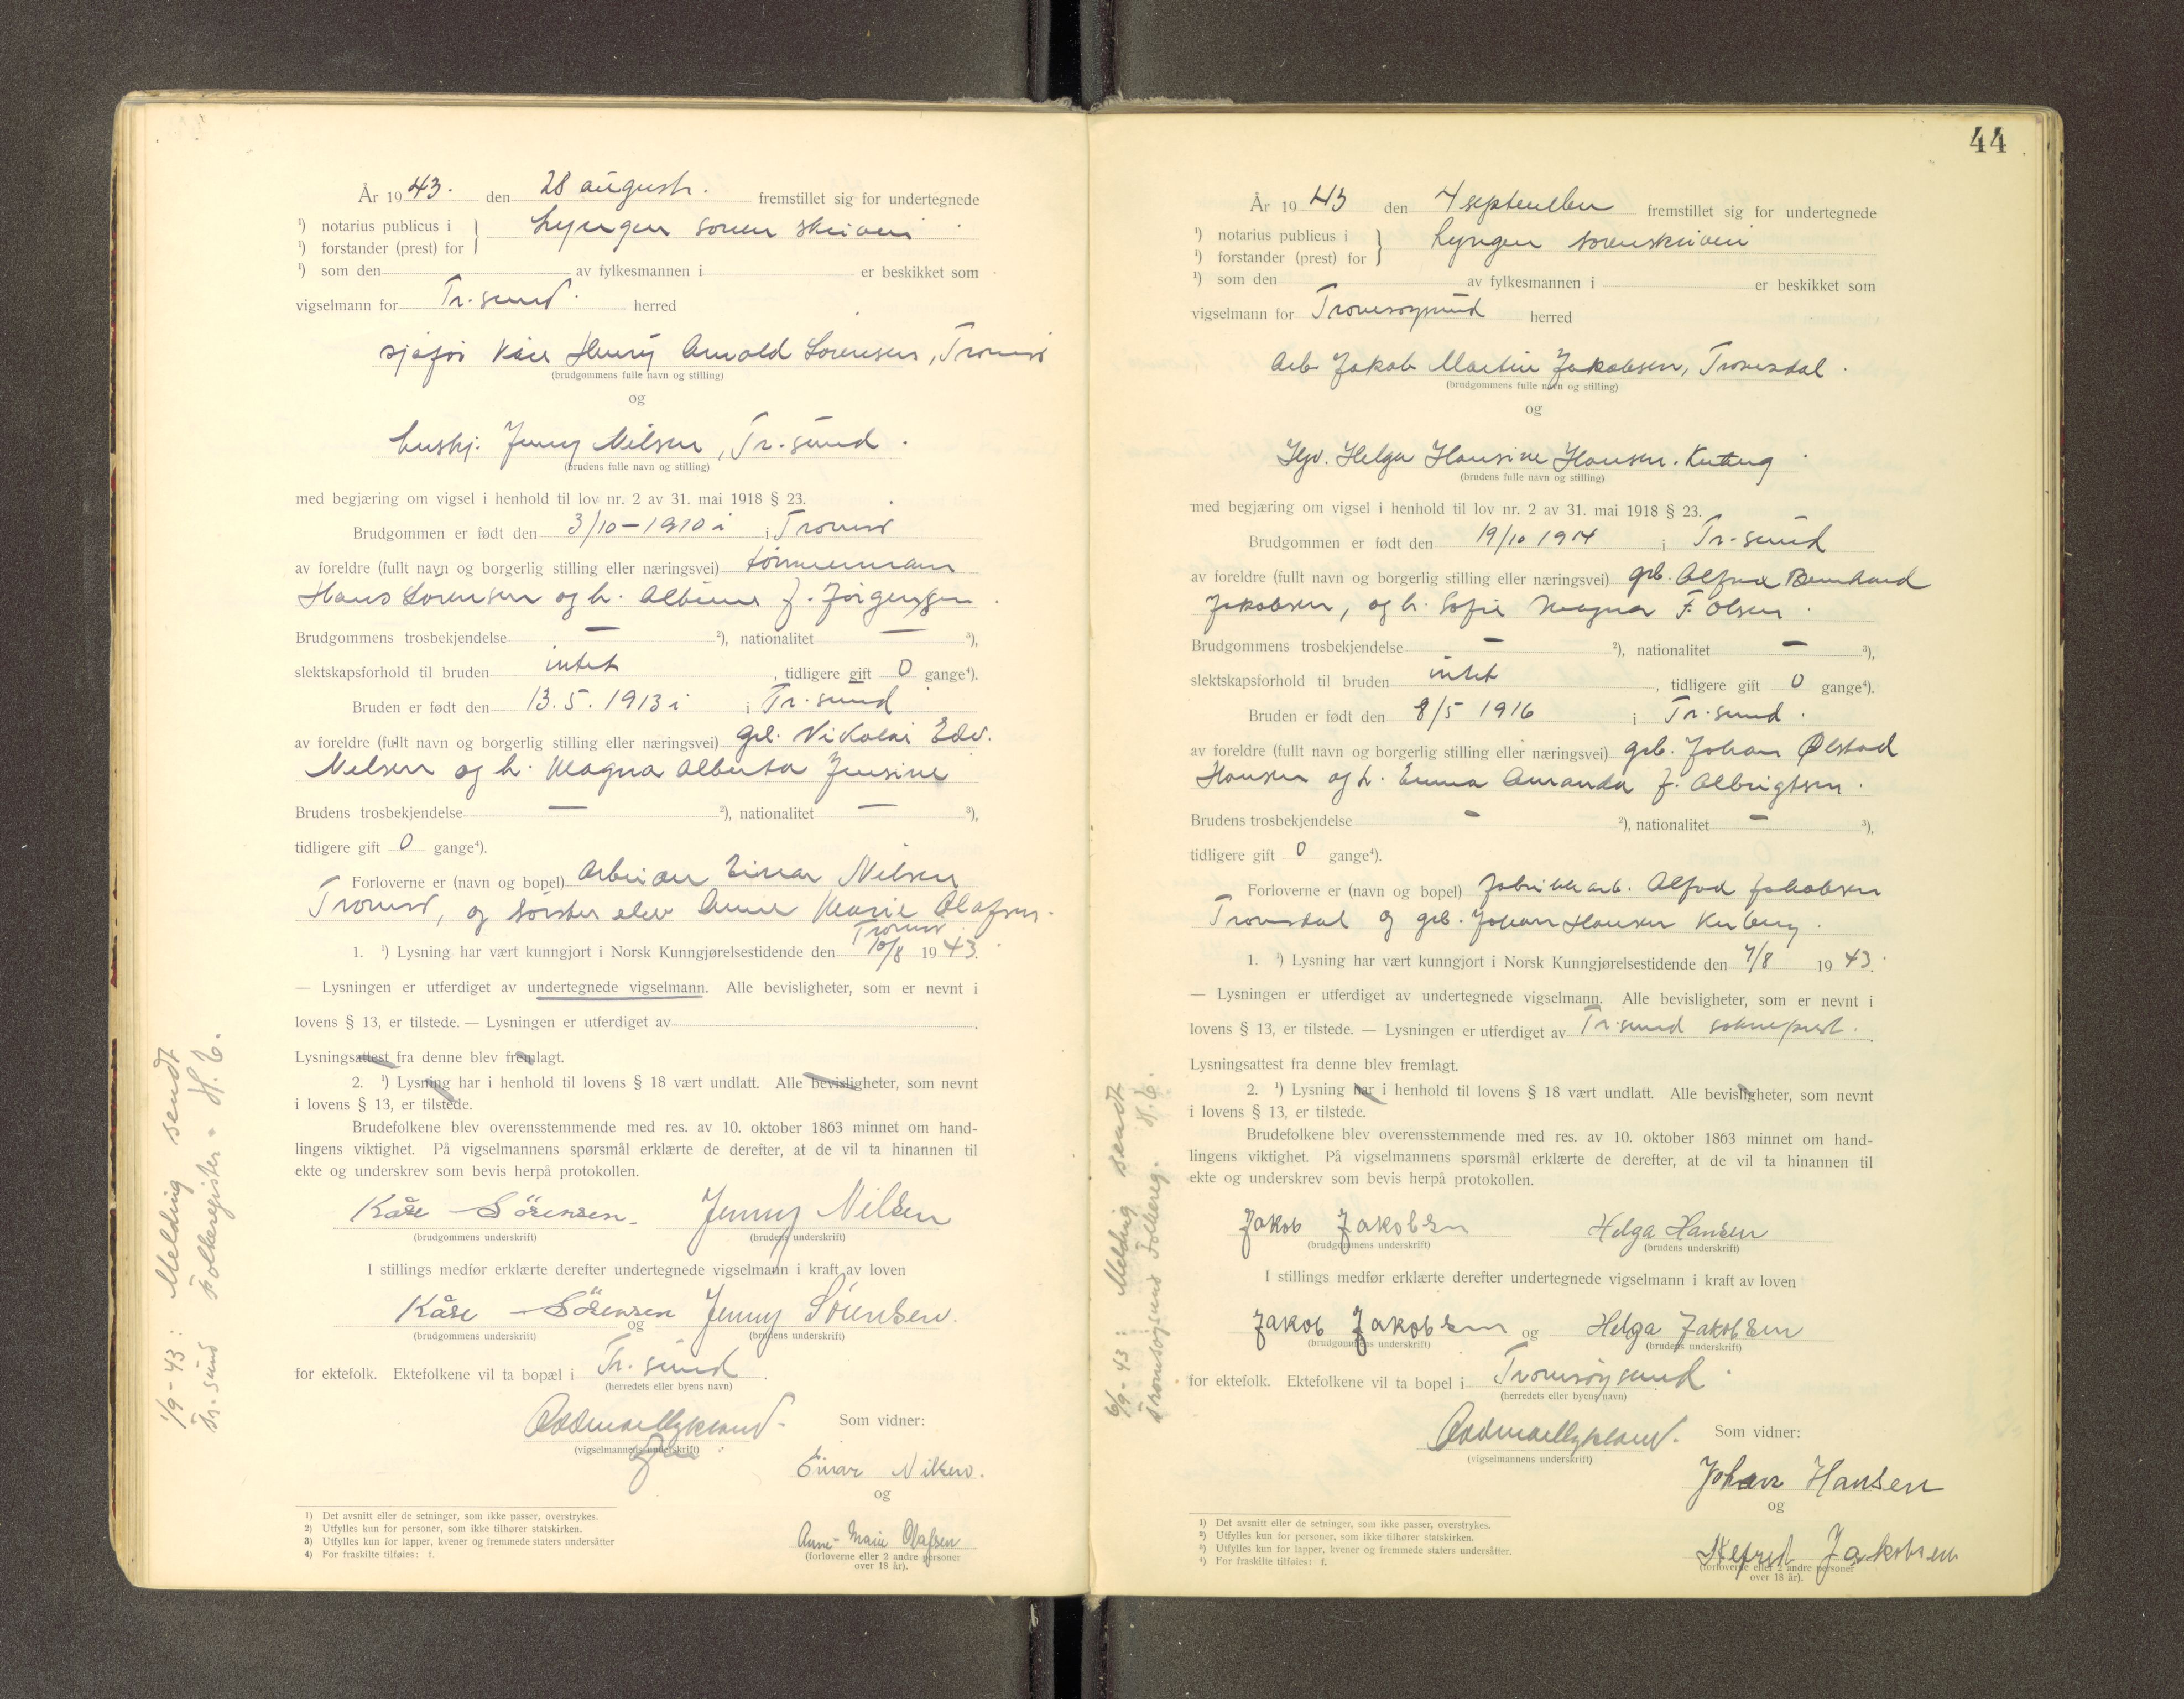 År 1943. den 28 august. fremstillet sig for undertegnede
¹) notarius publicus i } Lyngen sorenskriveri
¹) forstander (prest) for
¹) som den av fylkesmannen i er beskikket som
vigselmann for Tr.sund. herred
sjåfør Kåre Henry Arnold Sørensen, Tromsø
(brudgommens fulle navn og stilling)
og
hushj. Jenny Nilsen, Tr.sund.
(brudens fulle navn og stilling)
med begjæring om vigsel i henhold til lov nr. 2 av 31. mai 1918 § 23.
Brudgommen er født den 3/10-1910 i i Tromsø
av foreldre (fullt navn og borgerlig stilling eller næringsvei) tømmermann
Hans Sørensen og h. Albine f. Jørgensen.
Brudgommens trosbekjendelse — ²), nationalitet — ³),
slektskapsforhold til bruden intet, tidligere gift 0 gange⁴).
Bruden er født den 13.5.1913 i i Tr.sund
av foreldre (fullt navn og borgerlig stilling eller næringsvei) grb. Nikolai Edv.
Nilsen og h. Magna Alberta Jensine
Brudens trosbekjendelse — ²), nationalitet — ³),
tidligere gift 0 gange⁴).
Forloverne er (navn og bopel) Arbeider Einar Nilsen
Tromsø, og søster elev Anne Marie Olafsen.
Tromsø
1. ¹) Lysning har vært kunngjort i Norsk Kunngjørelsestidende den 10/8 1943.
— Lysningen er utferdiget av undertegnede vigselmann. Alle bevisligheter, som er nevnt i
lovens § 13, er tilstede. — Lysningen er utferdiget av
Lysningsattest fra denne blev fremlagt.
2. ¹) Lysning har i henhold til lovens § 18 vært undlatt. Alle bevisligheter, som nevnt
i lovens § 13, er tilstede.
Brudefolkene blev overensstemmende med res. av 10. oktober 1863 minnet om hand-
lingens viktighet. På vigselmannens spørsmål erklærte de derefter, at de vil ta hinannen til
ekte og underskrev som bevis herpå protokollen.
Kåre Sörensen. Jenny Nilsen
(brudgommens underskrift) (brudens underskrift)
I stillings medfør erklærte derefter undertegnede vigselmann i kraft av loven
Kåre Sörensen og Jenny Sörensen.
(brudgommens underskrift) (brudens underskrift)
for ektefolk. Ektefolkene vil ta bopæl i Tr.sund
(herredets eller byens navn)
Som vidner:
(vigselmannens underskrift)
Einar Nilsen.
og
Anne-Marie Olafsen
(forloverne eller 2 andre personer
over 18 år).
1) Det avsnitt eller de setninger, som ikke passer, overstrykes.
2) Utfylles kun for personer, som ikke tilhører statskirken.
3) Utfylles kun for lapper, kvener og fremmede staters undersåtter
4) For fraskilte tilføies: f.
1/9-43: Melding sendt
Tr.sund Folkeregister. H.E.
44
År 1943 den 4 september fremstillet sig for undertegnede
¹) notarius publicus i } Lyngen sorenskriveri
¹) forstander (prest) for
¹) som den av fylkesmannen i er beskikket som
vigselmann for Tromsøysund herred
Arb. Jakob Martin Jakobsen, Tromsdal.
(brudgommens fulle navn og stilling)
og
Hjv. Helga Hansine Hansen.
(brudens fulle navn og stilling)
med begjæring om vigsel i henhold til lov nr. 2 av 31. mai 1918 § 23.
Brudgommen er født den 19/10 1914 i Tr-sund
av foreldre (fullt navn og borgerlig stilling eller næringsvei) grb. Alfred Bernhard
Jakobsen, og h. Sofie Magna F. Olsen.
Brudgommens trosbekjendelse — ²), nationalitet — ³),
slektskapsforhold til bruden intet, tidligere gift 0 gange⁴).
Bruden er født den 8/5 1916 i Tr.sund.
av foreldre (fullt navn og borgerlig stilling eller næringsvei) grb. Johan Ølstad
Hansen og h. Emma Amanda f. Albrigtsen.
Brudens trosbekjendelse — ²), nationalitet — ³),
tidligere gift 0 gange⁴).
Forloverne er (navn og bopel) fabrikkarb. Alfred Jakobsen
Tromsdal og grb. Johan Hansen
1. ¹) Lysning har vært kunngjort i Norsk Kunngjørelsestidende den 7/8 1943.
— Lysningen er utferdiget av undertegnede vigselmann. Alle bevisligheter, som er nevnt i
lovens § 13, er tilstede. — Lysningen er utferdiget av Tr.sund sokneprest.
Lysningsattest fra denne blev fremlagt.
2. ¹) Lysning har i henhold til lovens § 18 vært undlatt. Alle bevisligheter, som nevnt
i lovens § 13, er tilstede.
Brudefolkene blev overensstemmende med res. av 10. oktober 1863 minnet om hand-
lingens viktighet. På vigselmannens spørsmål erklærte de derefter, at de vil ta hinannen til
ekte og underskrev som bevis herpå protokollen.
Jakob Jakobsen Helga Hansen
(brudgommens underskrift) (brudens underskrift)
I stillings medfør erklærte derefter undertegnede vigselmann i kraft av loven
Jakob Jakobsen og Helga Jakobsen
(brudgommens underskrift) (brudens underskrift)
for ektefolk. Ektefolkene vil ta bopel i Tromsøysund
(herredets eller byens navn)
Som vidner:
(vigselmannens underskrift)
Johan Hansen
og
Jakobsen
(forloverne eller 2 andre personer
over 18 år).
1) Det avsnitt eller de setninger, som ikke passer, overstrykes.
2) Utfylles kun for personer, som ikke tilhører statskirken.
3) Utfylles kun for lapper, kvener og fremmede staters undersåtter.
4) For fraskilte tilføies: f.
6/9-43: Melding sendt
Tromsøysund Folkereg. H.E.